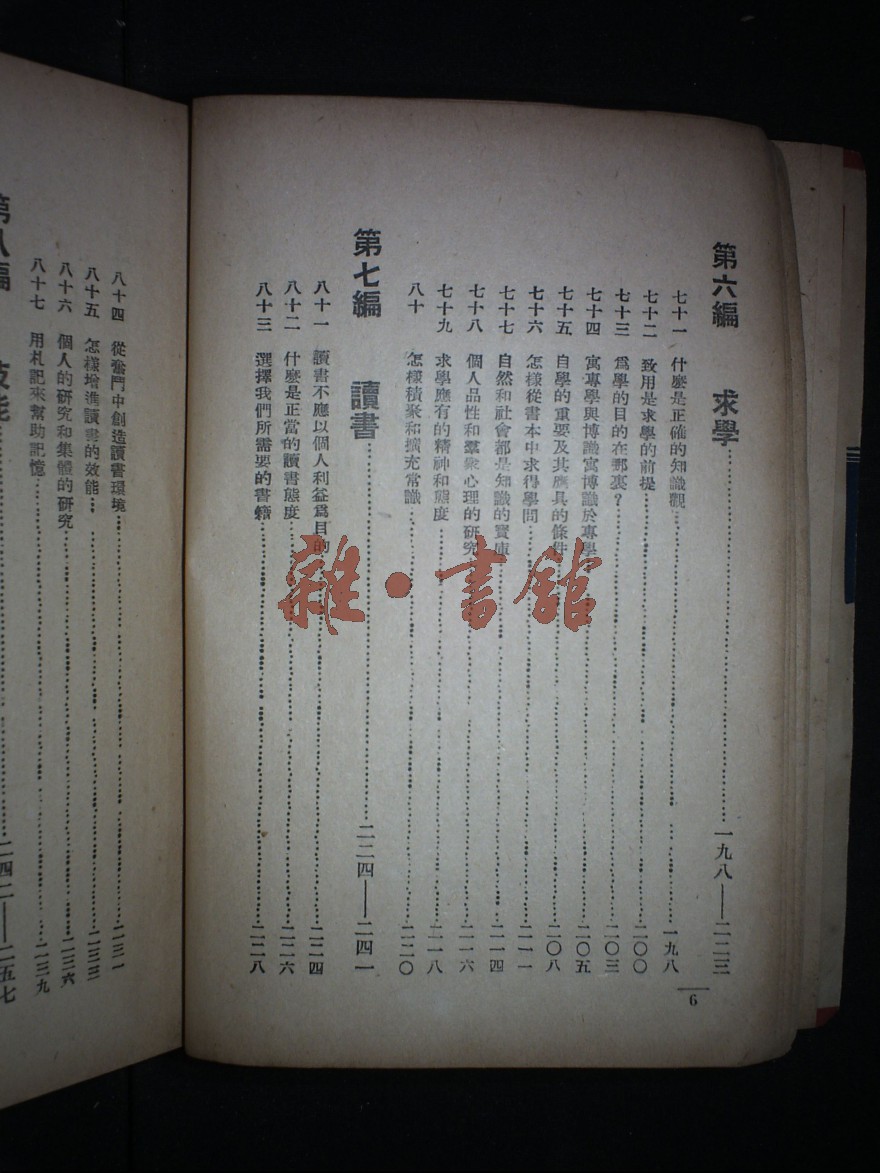 第六編 求學……一九八——二二三
七十一 什麼是正確的知識觀……一九八
七十二 致用是求學的前提……二〇〇
七十三 爲學的目的在那裏？……二〇三
七十四 寓專學與博識寓博識於專學……二〇五
七十五 自學的重要及其應具的條件……二〇八
七十六 怎樣從書本中求得學問……二一一
七十七 自然和社會都是知識的寶庫……二一四
七十八 個人品性和羣衆心理的研究……二一六
七十九 求學應有的精神和態度……二一八
八十 怎樣積聚和擴充常識……二二〇
第七編 讀書……二二四——二四一
八十一 讀書不應以個人利益爲目的……二二四
八十二 什麼是正當的讀書態度……二二六
八十三 選擇我們所需要的書籍……二二八
6
八十四 從奮鬥中創造讀書環境……二三一
八十五 怎樣增進讀書的效能……二三三
八十六 個人的研究和集體的研究……二三六
八十七 用札記來幫助記憶……二三九
第八編 技能……二四二——二五七
雜·書館